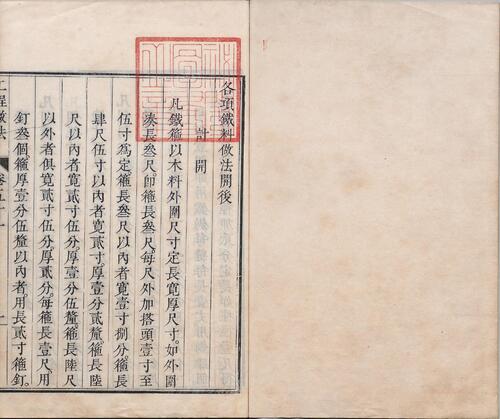 各項鐵料做法開後
計開
凡鐵箍以木料外圍尺寸定長寬厚尺寸如外圍
湊長叁尺即箍長叁尺每尺外加搭頭壹寸至
伍寸為定箍長叁尺以內者寬壹寸捌分箍長
肆尺伍寸以內者寬貳寸厚壹分貳釐箍長陸
尺以內者寬貳寸厚壹分伍釐箍長陸尺
以外者俱寬貳寸伍分厚貳分每箍長壹尺用
釘叁個箍厚壹分伍釐以內者用長貳寸箍釘
工程做法
卷五十一